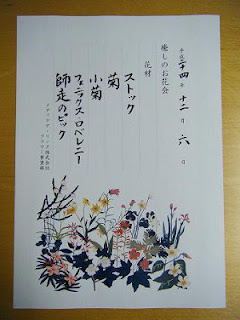 平成二十四年 十二月 六日
癒しのお花会
花材
ストック
菊
小菊
フェニックス・ロベレニー
師走のピック